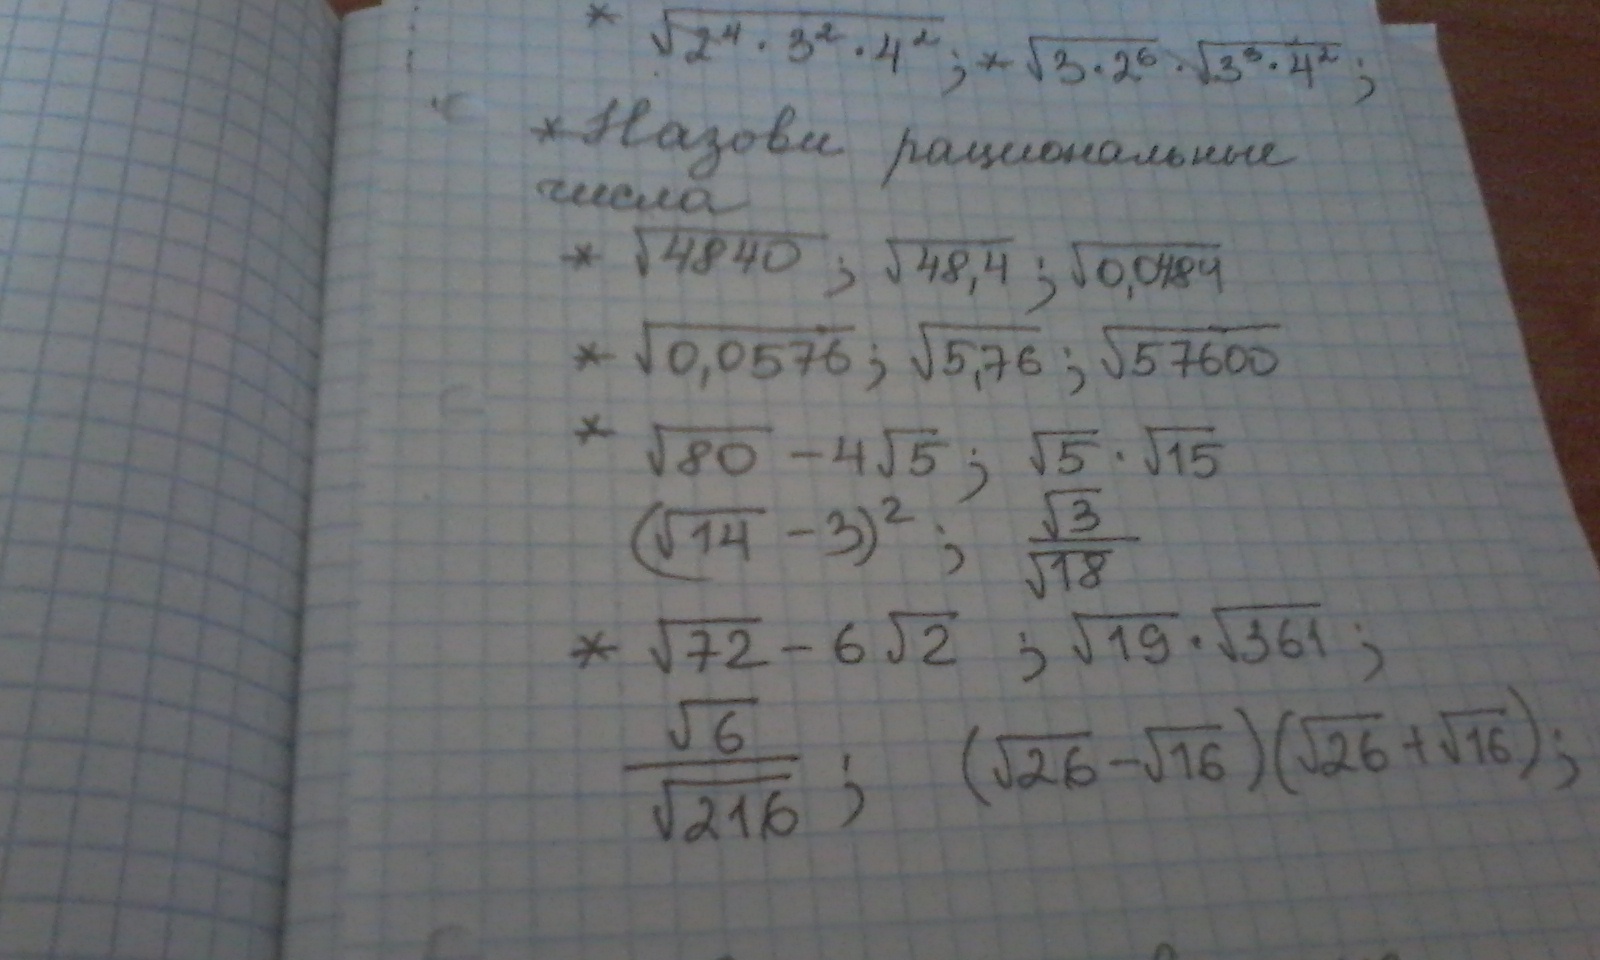 * √(2⁴ · 3² · 4²); * √(3 · 2⁶) · √(3³ · 4²);
* Назови рациональные
числа
* √4840; √48,4; √0,0484
* √0,0576; √5,76; √57600
* √80 - 4√5; √5 · √15
(√14 - 3)²; √3/√18
* √72 - 6√2; √19 · √361;
√6/√216; (√26 - √16)(√26 + √16);